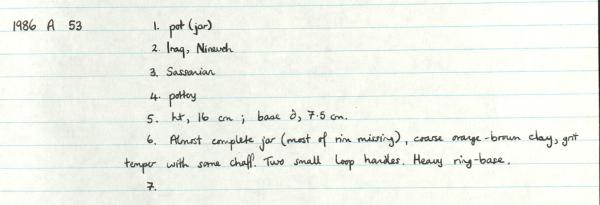 1986 A 53 1. pot (jar)
2. Iraq, Nineveh
3. Sassanian
4. pottey
5. ht, 16 cm ; base ∂, 7.5 cm.
6. Almost complete jar (most of rim missing), coarse orange-brown clay, grit
temper with some chaff. Two small loop handles. Heavy ring-base.
7.